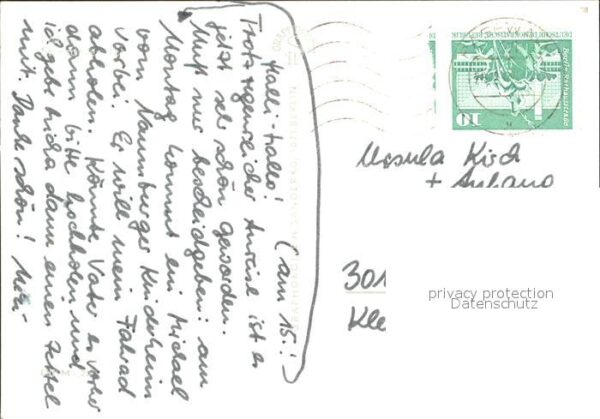 Halli-Hallo! (am 15.!)
Trotz regenreicher Anreise ist es
jetzt sehr schön geworden.
Muß nur bescheidgeben: am
Montag kommt ein Michael
vom Naumburger Kinderheim
vorbei. Er will mein Fahrad
abholen. Könnte Vater es vorher
dann bitte hochholen und
ich gebe bidra dann einen Zettel
mit. Danke schön!
DEUTSCHE DEMOKRATISCHE REPUBLIK
Berlin, Rathausstraße
10
Ursula Kirch
+ Anhang
301
Kle
privacy protection
Datenschutz